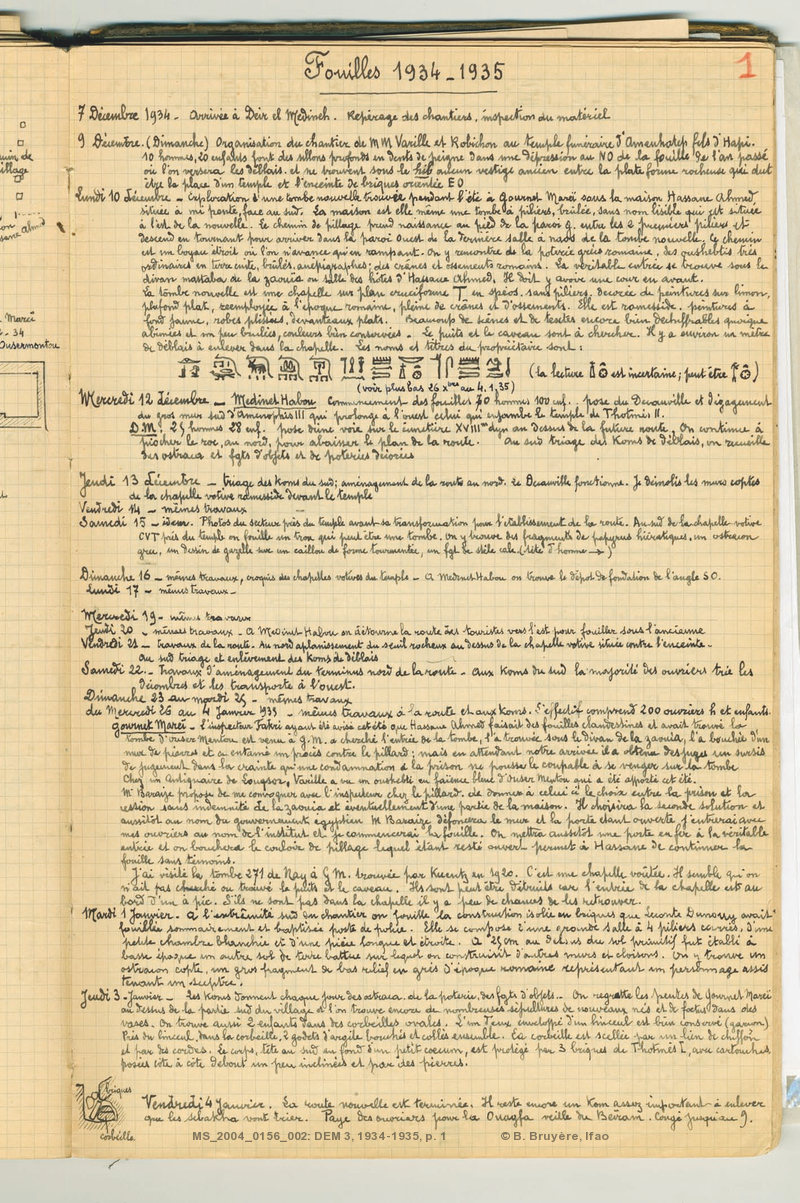 Fouilles 1934-1935
1
7 Décembre 1934 - Arrivée à Deir el Medineh. Repérage des chantiers, inspection du matériel
9 Décembre. (Dimanche) Organisation du chantier de MM Varille et Robichon au temple funéraire d'Amenhotep fils d'Hapi.
10 hommes, 20 enfants font des sillons profonds en dents de peigne dans une dépression au NO de la fouille de l'an passé
où l'on versera les déblais. et ne trouvent sous le aucun vestige ancien entre la plate forme rocheuse qui doit
être la place d'un temple et l'enceinte de briques orientée E O
Lundi 10 décembre - Exploration d'une tombe nouvelle trouvée pendant l'été à Gournet Mareï sous la maison Hassane Ahmed
située à mi pente, face au sud. La maison est elle même une tombe à piliers, brûlée, sans nom lisible qui est située
à l'est de la nouvelle. Le chemin de pillage prend naissance au pied de la paroi G. entre les 2 premiers piliers et
descend en tournant pour arriver dans la paroi Ouest de la dernière salle à naos de la tombe nouvelle. Ce chemin
est un boyau étroit où l'on n'avance qu'en rampant. On y rencontre de la poterie gréco romaine, des oushebtis très
ordinaires en terre cuite, brûlés, anépigraphes; des crânes et ossements romains. La véritable entrée se trouve sous le
divan mastaba de la zaouïa ou salle des hôtes d'Hassane Ahmed. Il doit y avoir une cour en avant.
La tombe nouvelle est une chapelle sur plan cruciforme T en spéos, sans piliers, décorée de peintures sur limon,
plafond plat, réemployée à l'époque romaine, pleine de crânes et d'ossements. Elle est ramesside. peintures à
fond jaune, robes plissées, éventaux plats. Beaucoup de scènes et de textes encore bien déchiffrables quoique
abimées et un peu brulées, couleurs bien conservées. Le puits et le caveau sont à chercher. Il y a environ un mètre
de déblais à enlever dans la chapelle. Les noms et titres du propriétaire sont :
(la lecture est incertaine; peut être )
(voir plus bas 26 Xbre au 4.1.35)
Mercredi 12 décembre - Medinet Habou Commencement des fouilles 50 hommes 100 enf. - pose du Decauville et dégagement
du gros mur sud d'Amenophis III qui prolonge à l'ouest celui qui enjambe le temple de Thotmès II.
D.M. 25 hommes 28 enf. pose d'une voie sur le cimetière XVIIIme dyn au dessus de la future route. On continue à
piocher le roc, au nord, pour abaisser le plan de la route. Au sud triage des Koms de déblais, on recueille
des ostraca et fgts d'objets et de poteries décorées
Jeudi 13 décembre - triage des Koms du sud; aménagement de la route au nord. Le Decauville fonctionne. Je démolis les murs coptes
de la chapelle votive ramesside devant le temple
Vendredi 14 - mêmes travaux
Samedi 15 - idem. Photos du secteur près du temple avant sa transformation pour l'établissement de la route. Au sud de la chapelle votive
CVI près du temple on fouille un trou qui peut être une tombe. On y trouve des fragments de papyrus hiératiques, un ostracon
grec, un dessin de gazelle sur un caillou de forme tourmentée, un fgt de stèle calc (tête d'homme →)
Dimanche 16 - mêmes travaux, croquis des chapelles votives du temple - A Medinet Habou on trouve le dépôt de fondation de l'angle S.O.
Lundi 17 - mêmes travaux -
Mercredi 19 - mêmes travaux
Jeudi 20 - mêmes travaux - A Medinet Habou on détourne la route des touristes vers l'est pour fouiller sous l'ancienne
Vendredi 21 - travaux de la route. Au nord aplanissement du seuil rocheux au dessus de la chapelle votive située contre l'enceinte -
au sud triage et enlèvement des Koms de déblais
Samedi 22 - Travaux d'aménagement du terminus nord de la route - aux Koms du sud la majorité des ouvriers trie les
décombres et les transporte à l'ouest.
Dimanche 23 au mardi 25 - mêmes travaux
du Mercredi 26 au 4 Janvier 1935 - mêmes travaux à la route et aux Koms. L'effectif comprend 200 ouvriers h et enfants.
Gournet Mareï - l'inspecteur Fakri ayant été avisé cet été que Hassane Ahmed faisait des fouilles clandestines et avait trouvé la
tombe d'Ouser Mentou est venu à G.M. a cherché l'entrée de la tombe, l'a trouvée sous le divan de la zaouïa, l'a bouchée d'un
mur de pierres et a entamé un procès contre le pillard; mais en attendant notre arrivée il a obtenu des juges un sursis
de jugement dans la crainte qu'une condamnation à la prison ne pousse le coupable à se venger sur la tombe
Chez un Antiquaire de Louqsor, Varille a vu un oushebti en faïence bleue d'Ouser Mentou qui a été apporté cet été.
Mr Baraize propose de me convoquer avec l'inspecteur chez le pillard. de donner à celui ci le choix entre la prison et la
cession sans indemnité de la zaouïa et éventuellement d'une partie de la maison. Il choisira la seconde solution et
aussitôt au nom du gouvernement egyptien M Baraize défoncera le mur et la porte étant ouverte j'entrerai avec
mes ouvriers au nom de l'institut et je commencerai la fouille. On mettra aussitôt une porte en fer à la véritable
entrée et on bouchera le couloir de pillage lequel étant resté ouvert permet à Hassane de continuer la
fouille sans témoins.
J'ai visité la tombe 271 de Nay à G M. trouvée par Kuentz en 1920. C'est une chapelle voûtée. Il semble qu'on
n'ait pas cherché ou trouvé le puits et le caveau. Ils sont peut être détruits car l'entrée de la chapelle est au
bord d'un à pic. S'ils ne sont pas dans la chapelle il y a peu de chances de les retrouver.
Mardi 1 Janvier. A l'extrémité sud du chantier on fouille la construction isolée en briques que Leconte Dunouy avait
fouillée sommairement et baptisée poste de police. Elle se compose d'une grande salle à 4 piliers carrés, d'une
petite chambre blanchie et d'une pièce longue et étroite. A 25 cm au dessus du sol primitif fut établi à
basse époque un autre sol de terre battue sur lequel on construisit d'autres murs et cloisons. On y trouve un
ostracon copte, un gros fragment de bas relief en grès d'époque romaine représentant un personnage assis
tenant un sceptre.
Jeudi 3 - Janvier - Les Koms donnent chaque jour des ostraca. de la poterie, des fgts d'objets - On regratte les pentes de Gournet Mareï
au dessus de la partie sud du village et l'on trouve encore de nombreuses sépultures de nouveaux nés et de fœtus dans des
vases. On trouve aussi 2 enfants dans des corbeilles ovales. L'un d'eux enveloppé d'un linceul est bien conservé (garçon)
Près du linceul, dans la corbeille, 2 godets d'argile bouchés et collés ensemble. La corbeille est scellée par un lien de chiffon
et par des cordes. Le corps, tête au sud au fond d'un petit cœcum, est protégé par 3 briques de Thotmès I, avec cartouches,
posées côte à côte debout un peu inclinées et par des pierres.
briques
corbeille
Vendredi 4 Janvier. La route nouvelle est terminée. Il reste encore un Kom assez important à enlever
que les sebakha vont trier. Paye des ouvriers pour la Ouagfa veille du Beiram. Congé jusqu'au 9.
MS_2004_0156_002: DEM 3, 1934-1935, p. 1 © B. Bruyère, Ifao
village
Mareï
- 34
Ousermontou